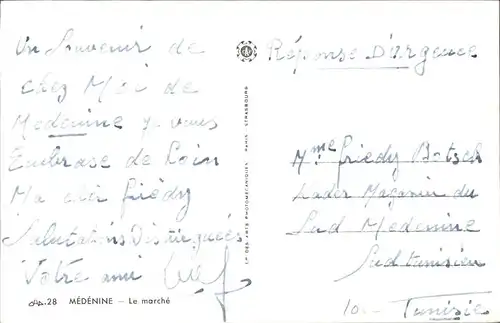 Un Souvenir de
chez Moi de
Medenine je vous
Embrase de Loin
Ma cher friedy
Salutations Distinguées
Votre ami
28 MÉDÉNINE — Le marché
Cie DES ARTS PHOTOMÉCANIQUES PARIS STRASBOURG
Réponse D'urgence
Mme friedy Botsch
Magasin du
Sud Medenine
Sud tunisien
Tunisie